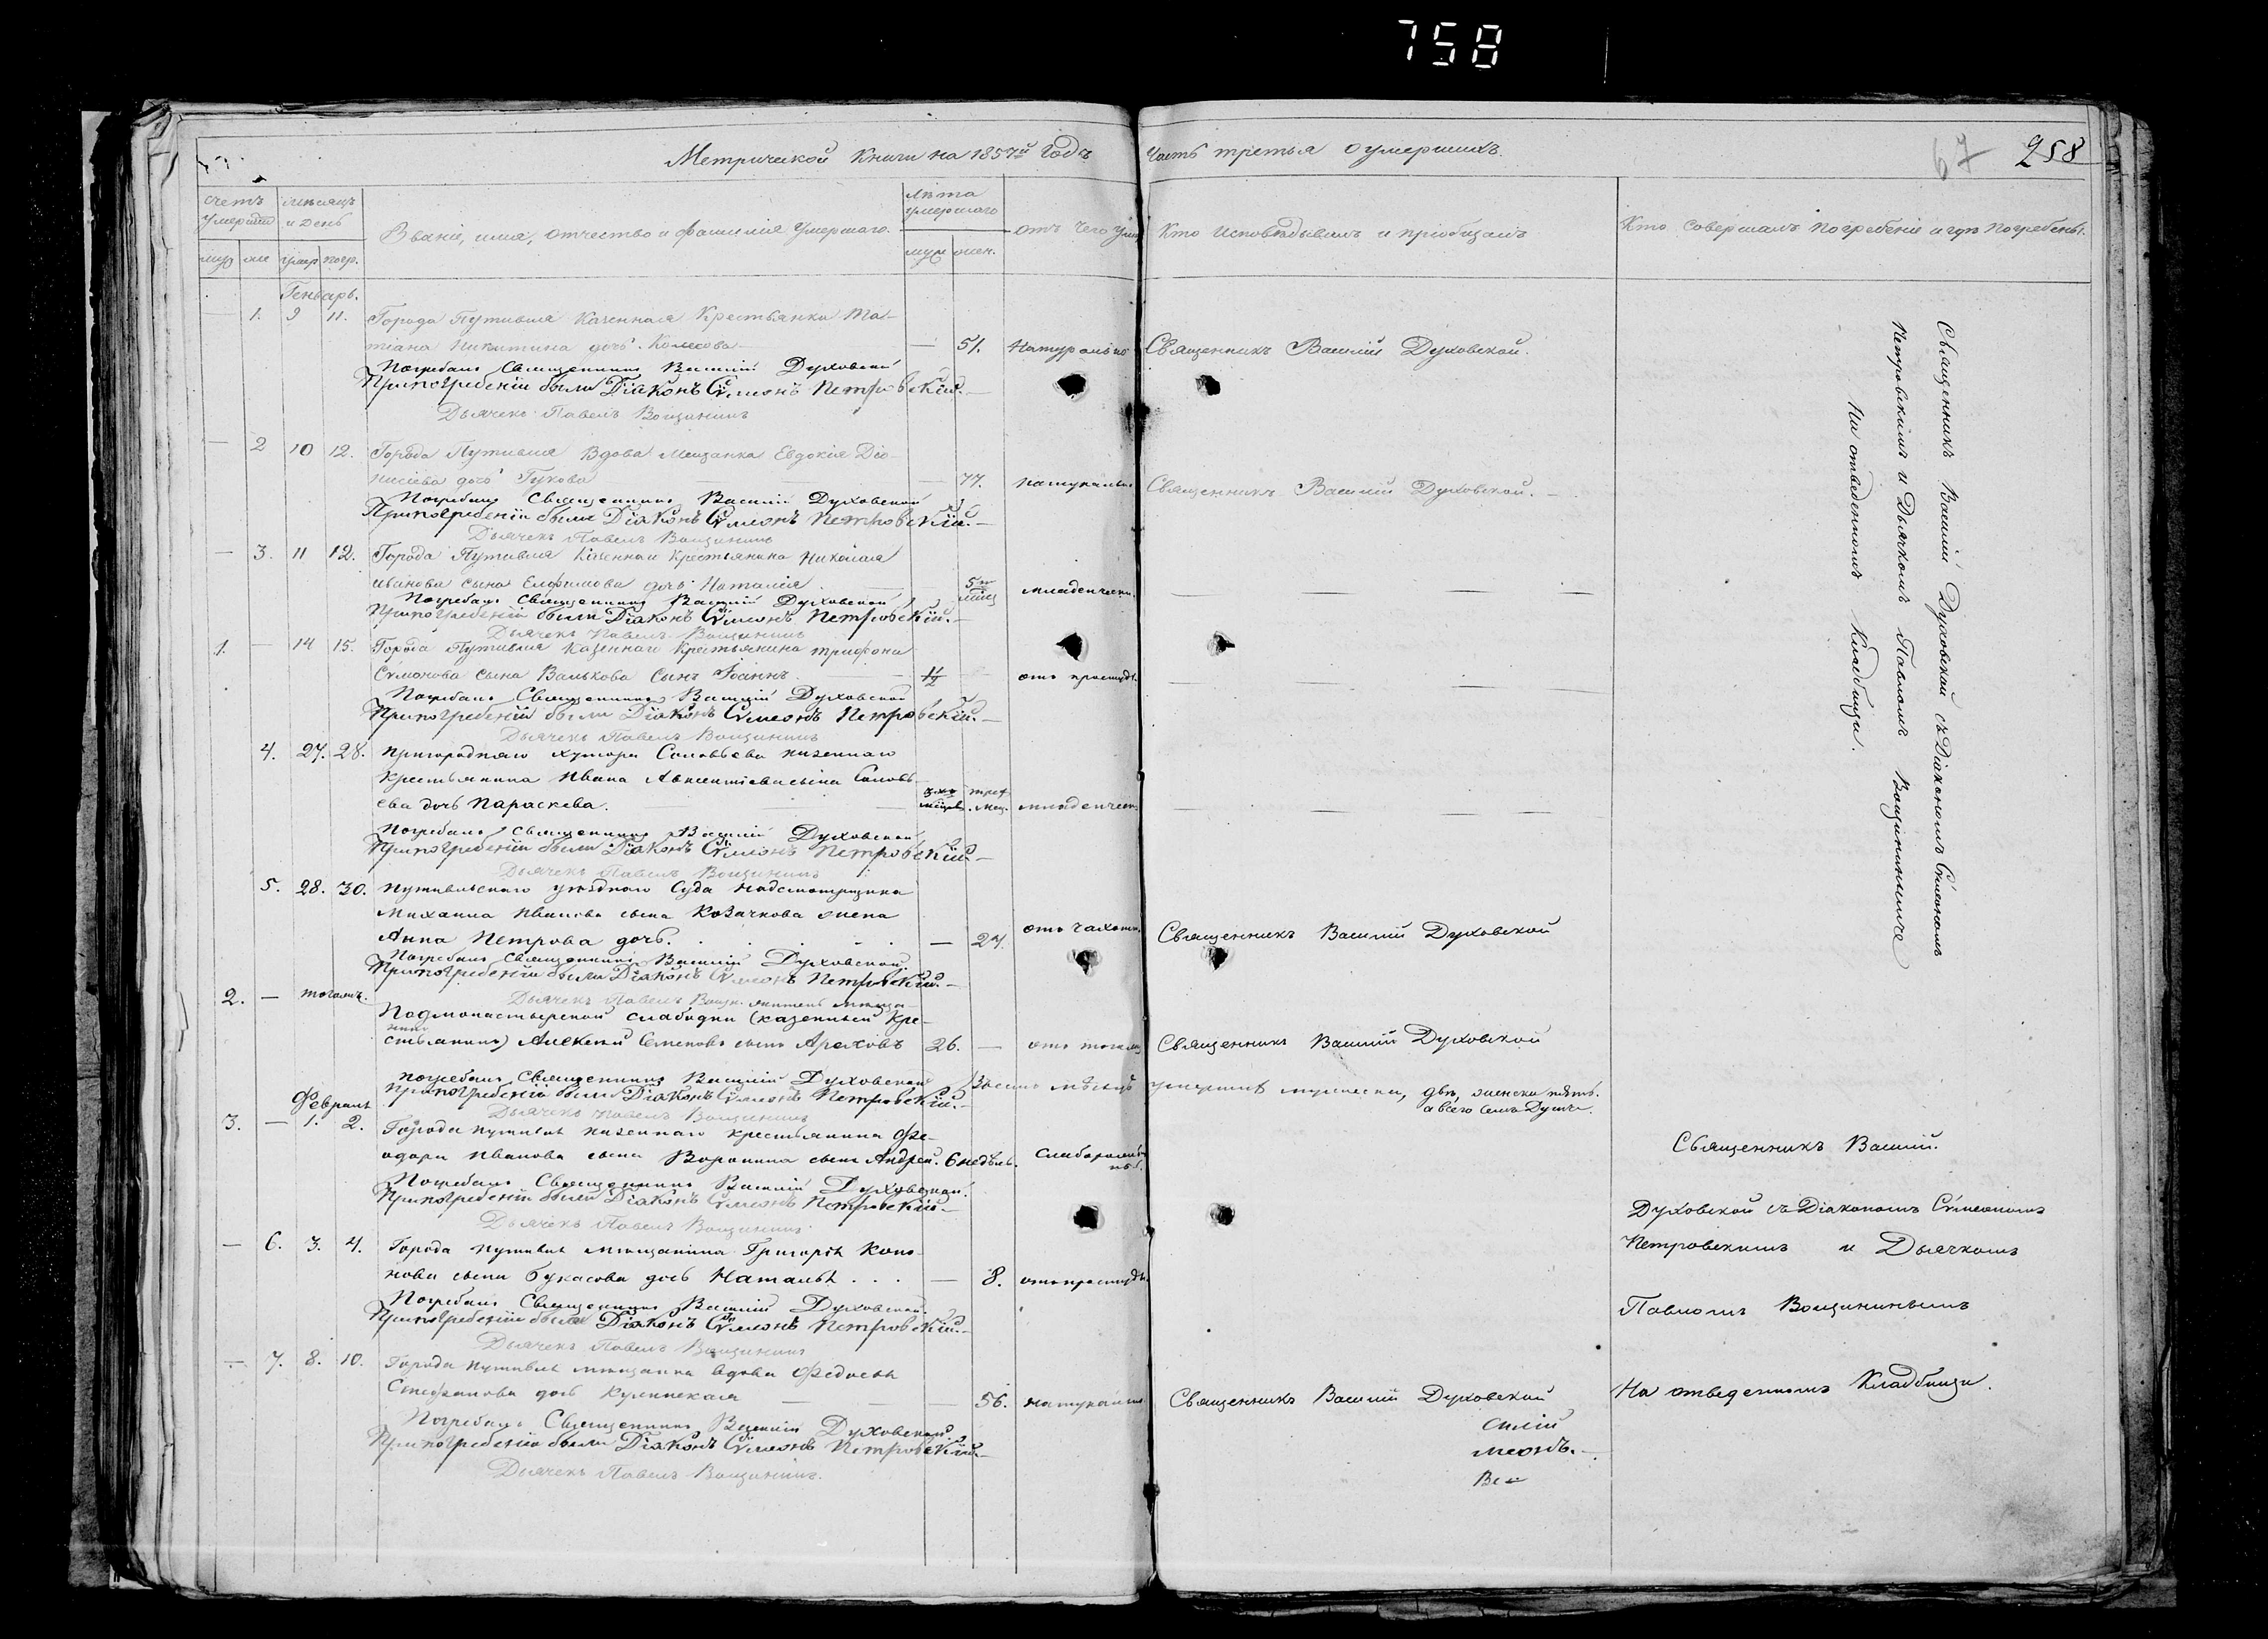 758
Метрической Книги на 1857й Годъ
Часть третья о умершихъ.
67
258
счетъ умерши
мѣсяцъ и день
Званіе, имя, отчество и фамилія Умершаго.
лѣта умершаго
отъ чего
Кто Исповѣдывалъ и пріобщалъ
Кто Совершалъ Погребеніе и гдѣ Погребены.
муж
умер
погр.
муж
жен.
Генварь.
1. 9 11. Города Путивля Казенная Крестьянка Та-
тіана Никитина дочь Колесова — 51. Натурально Священникъ Василій Духовской.
Погребалъ Священникъ Василій Духовской
При погребеніи были Діаконъ Сѵмеонъ Петровскій.
Дьячекъ Павелъ Вощининъ
— 2 10 12. Города Путивля Вдова Мещанка Евдокія Діо-
нисіева дочь Гукова — 77. натурально Священникъ Василій Духовской.
Погребалъ Священникъ Василій Духовской
При погребеніи были Діаконъ Сѵмеонъ Петровскій.
Дьячекъ Павелъ Вощининъ
— 3. 11 12. Города Путивля Казеннаго Крестьянина Николая
Иванова сына Елфимова дочь Наталія 5ти мѣсц младенческ.
Погребалъ Священникъ Василій Духовской
При погребеніи были Діаконъ Сѵмеонъ Петровскій.
Дьячекъ Павелъ Вощининъ
1. — 14 15. Города Путивля Казеннаго Крестьянина Трифона
Сѵмонова сына Валькова сынъ Іоаннъ — отъ простуды
Погребалъ Священникъ Василій Духовской
При погребеніи были Діаконъ Сѵмеонъ Петровскій.
Дьячекъ Павелъ Вощининъ
4. 27. 28. Пригороднаго хутора Соловьева казеннаго
крестьянина Ивана Авксентіева сына Соловь-
ева дочь Параскева. трех мец. младенческ
Погребалъ Священникъ Василій Духовской
При погребеніи были Діаконъ Сѵмеонъ Петровскій.
Дьячекъ Павелъ Вощининъ
5. 28. 30. Путивльскаго уѣзднаго Суда надсмотрщика
Михаила Иванова сына Козачкова жена
Анна Петрова дочь. — 27. отъ чахотк. Священникъ Василій Духовской
Погребалъ Священникъ Василій Духовской
При погребеніи были Діаконъ Сѵмеонъ Петровскій.
Дьячекъ Павелъ Вощи.
2. — тогожъ. Подмонастырской слабодки (казенный кре-
стьянинъ) Алексей Семеновъ сынъ Ареховъ 26. — отъ тогожъ Священникъ Василій Духовской
Погребалъ Священникъ Василій Духовской
При погребеніи были Діаконъ Сѵмеонъ Петровскій.
Дьячекъ Павелъ Вощининъ
мѣсяцъ умершихъ мужески, двѣ, женски пять.
а всего семь Душъ.
Февраль
3. — 1. 2. Города Путивля казеннаго крестьянина Фе-
одора Иванова сына Воронина сынъ Андрей. 6 недѣль.
Погребалъ Священникъ Василій Духовской.
При погребеніи были Діаконъ Сѵмеонъ Петровскій.
Дьячекъ Павелъ Вощининъ
— 6. 3. 4. Города Путивля мещанина Григорія Коно-
нова сына Букасова дочь Наталья . . . — 8. отъ простуды.
Погребалъ Священникъ Василій Духовской.
При погребеніи были Діаконъ Сѵмеонъ Петровскій.
Дьячекъ Павелъ Вощининъ
— 7. 8. 10. Города Путивля мещанка вдова Федосья
Стефанова дочь — 56. натурально Священникъ Василій Духовской
Погребалъ Священникъ Василій Духовской
При погребеніи были Діаконъ Сѵмеонъ Петровскій.
Дьячекъ Павелъ Вощининъ.
силій
меонъ.
Ве
Священникъ Василій Духовской съ Діакономъ Сѵмеономъ
Петровскимъ и Дьячкомъ Павломъ Вощининымъ
На отведенномъ Кладбищи.
Священникъ Василій.
Духовской съ Діакономъ Сѵмеономъ
Петровскимъ и Дьячкомъ
Павломъ Вощининымъ
На отведенномъ Кладбищи.